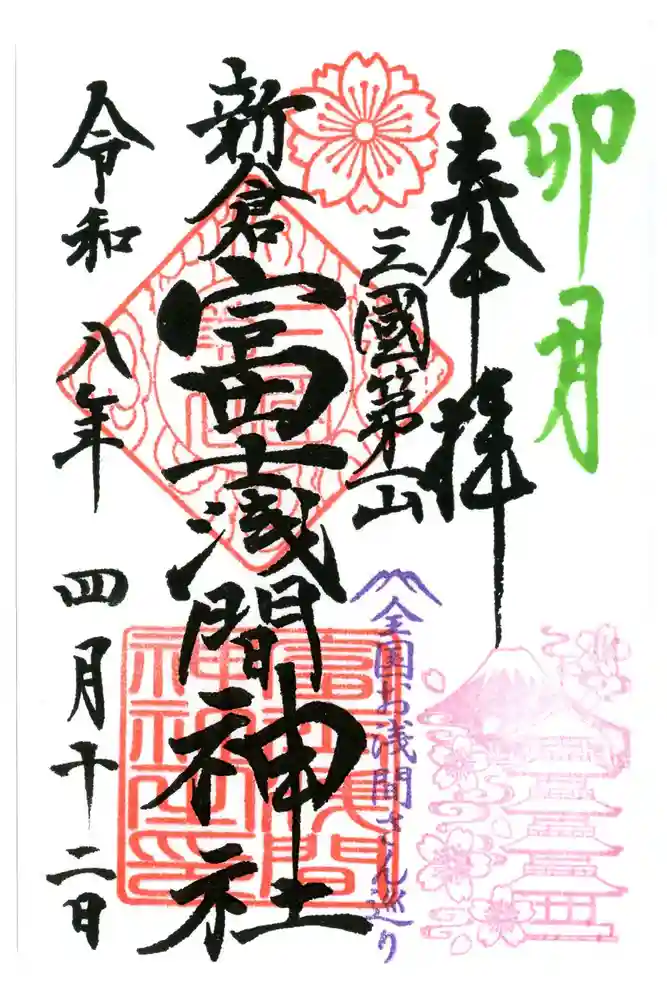 卯月
奉拝
三國第一山
全国お浅間さん巡り
新倉富士浅間神社
令和八年四月十二日